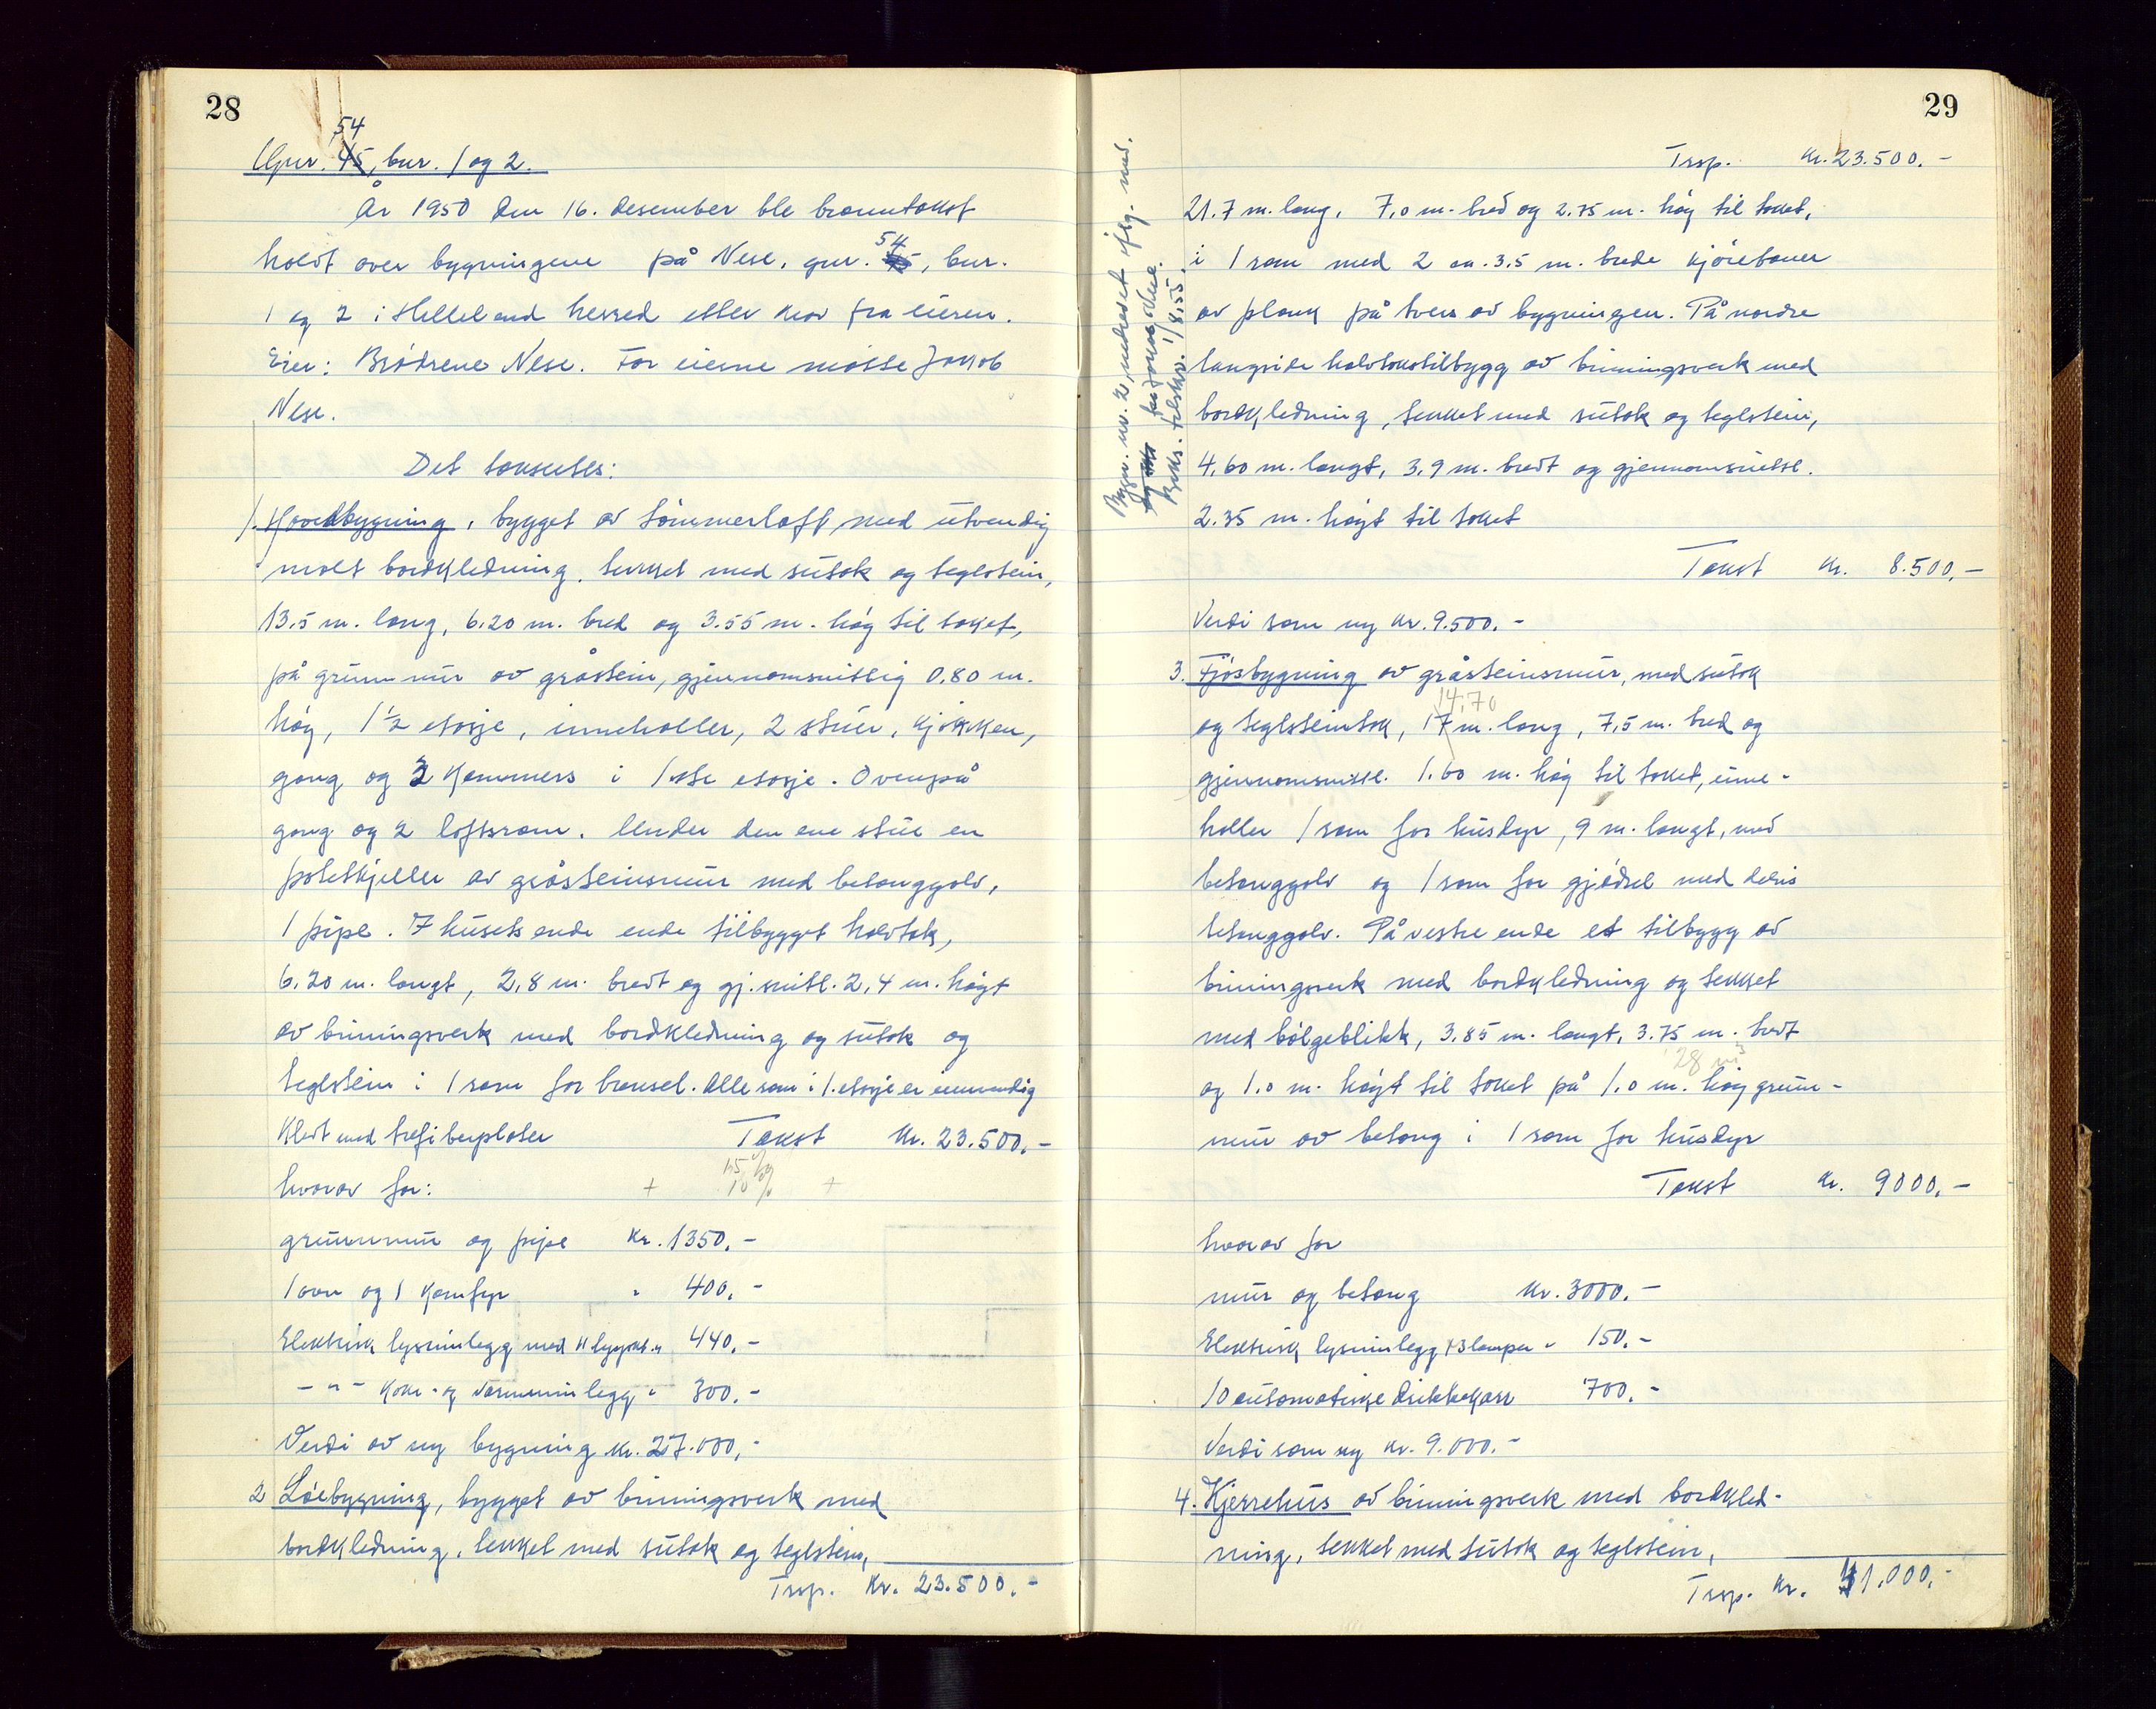 28
54
Gnr. 45, bnr. 1 og 2.
År 1950 den 16. desember ble branntakst
holdt over bygningene på Nese, gnr. 54, bnr.
1 og 2 i Helleland herred etter krav fra eieren.
Eier: Brødrene Nese. For eierne møtte Jakob
Nese.
Det taksertes:
1. Hovedbygning, bygget av tømmerlaft med utvendig
malt bordkledning, tekket med sutak og teglstein,
13.5 m. lang, 6.20 m. bred og 3.55 m. høg til taket,
på grunnmur av gråstein, gjennomsnittlig 0.80 m.
høg, 1½ etasje, inneholler, 2 stuer, kjøkken,
gang og 2 kammers i 1ste etasje. Ovenpå
gang og 2 loftsrom. Under den ene stue en
potetkjeller av gråsteinsmur med betonggolv,
1 pipe. I husets ende ende tilbygget halvtak,
6.20 m. langt, 2,8 m. bredt og gj.snitl. 2,4 m. høgt
av binningsverk med bordkledning og sutak og
teglstein i 1 rom for brensel. Alle rom i 1. etasje er innvendig
kledt med trefiberplater Takst Kr. 23.500.-
15%
hvorav for: + 10% +
grunnmur og pipe Kr. 1350.-
1 ovn og 1 komfyr " 400.-
Elektrisk lysinnlegg med 11 lyspkt. " 440.-
- " - koke- og varmeinnlegg " 300.-
Verdi av ny bygning kr. 27.000,-
2 Løebygning, bygget av binningsverk med
bordkledning, tekket med sutak og teglstein,
Trsp. Kr. 23.500.-
29
Trsp. Kr. 23.500.-
21.7 m. lang, 7,0 m. bred og 2.75 m. høg til taket,
i 1 rom med 2 ca. 3.5 m. brede kjørebaner
av plank på tvers av bygningen. På nordre
langside halvtakstilbygg av binningsverk med
bordkledning, tekket med sutak og teglstein,
4,60 m. langt, 3.9 m. bredt og gjennomsnittl.
2.35 m. høgt til taket
Takst Kr. 8.500,-
Verdi som ny kr. 9.500.-
3. Fjøsbygning av gråsteinsmur, med sutak
14,70
og teglsteintak, 17 m. lang, 7,5 m. bred og
gjennomsnittl. 1.60 m. høg til taket, inne-
holler 1 rom for husdyr, 9 m. langt, med
betonggolv og 1 rom for gjødsel med delvis
betonggolv. På vestre ende et tilbygg av
binningsverk med bordkledning og tekket
med bølgeblikk, 3.85 m. langt, 3.75 m. bredt
28 m³
og 1.0 m. høgt til taket på 1.0 m. høg grunn-
mur av betong i 1 rom for husdyr
Takst Kr. 9000.-
hvorav for
mur og betong Kr. 3000.-
Elektrisk lysinnlegg 13 lamper " 150.-
10 automatiske drikkekarr 700.-
Verdi som ny kr. 9.000.-
4. Kjerrehus av binningsverk med bordkled-
ning, tekket med sutak og teglstein,
Trsp. Kr. 41.000.-
Bygn. nr. 2, nedrevet iflg. med.
fra Jonas Nese.
tilskr. 1/8.55.